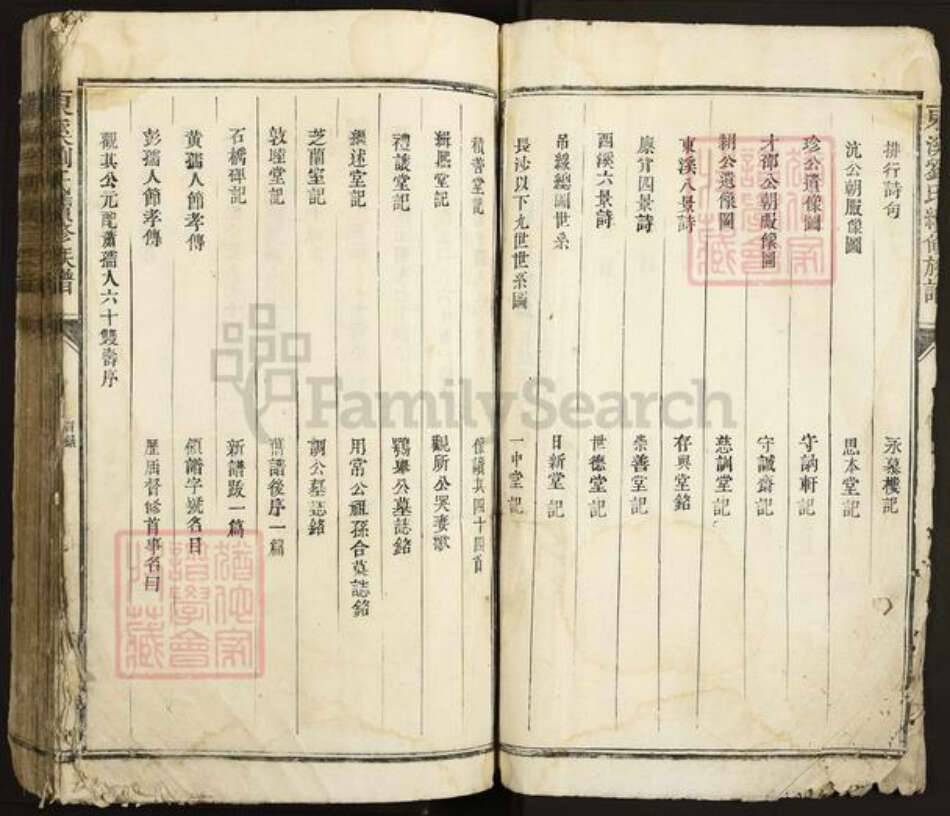 東溪劉氏續修族譜
排行詩句
永慕樓記
沆公朝服像圖
思本堂記
珍公遺像圖
守訥軒記
才邵公朝服像圖
守誠齋記
朝公遺像圖
慈訓堂記
東溪八景詩
存興堂銘
康甯四景詩
崇善堂記
西溪六景詩
世德堂記
吊綫總圖世系
日新堂記
長沙以下九世世系圖
一中堂記
積善堂記
像讚共四十四首
緝熙堂記
觀所公哭妻歌
禮讓堂記
鶚舉公墓誌銘
繼述堂記
用常公祖孫合墓誌銘
芝蘭室記
調公墓誌銘
敦睦堂記
舊譜後序一篇
石橋碑記
新譜跋一篇
黃孺人節孝傳
領譜字號名目
彭孺人節孝傳
歷屆督修首事名目
觀其公元配蕭孺人六十雙壽序
FamilySearch